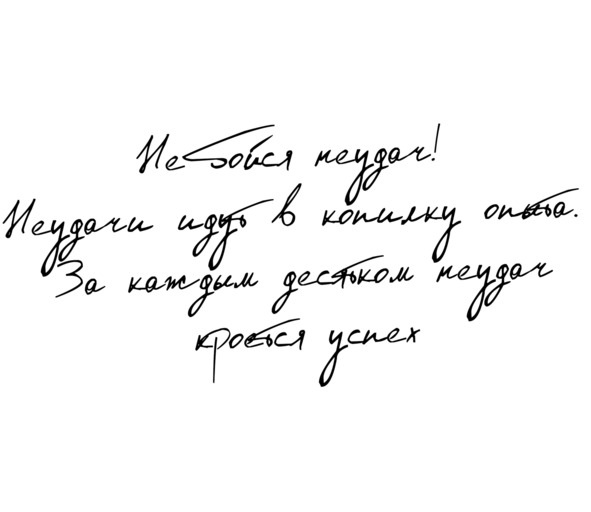 Не бойся неудач!
Неудачи идуть в копилку опыта.
За каждым десятком неудач
кроется успех